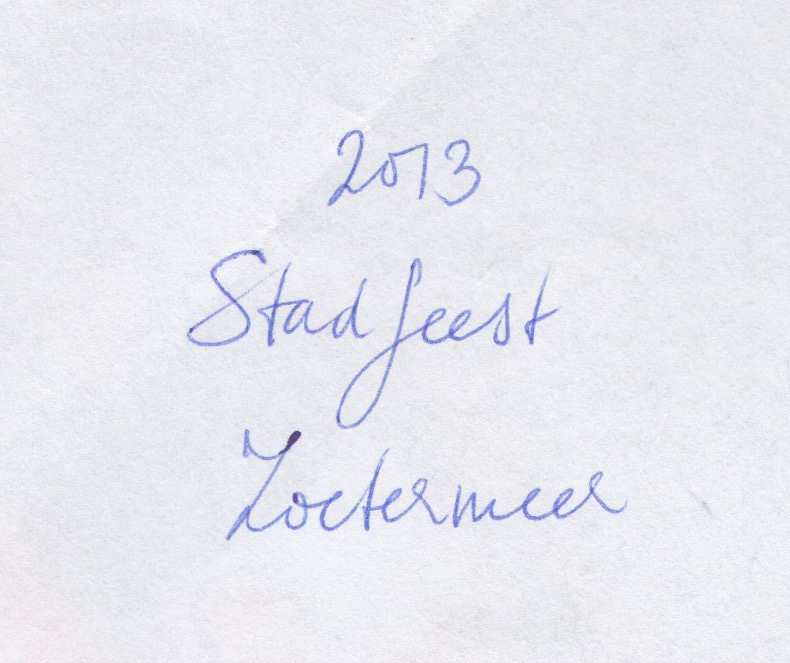 2013
Stadfeest
Zoetermeer